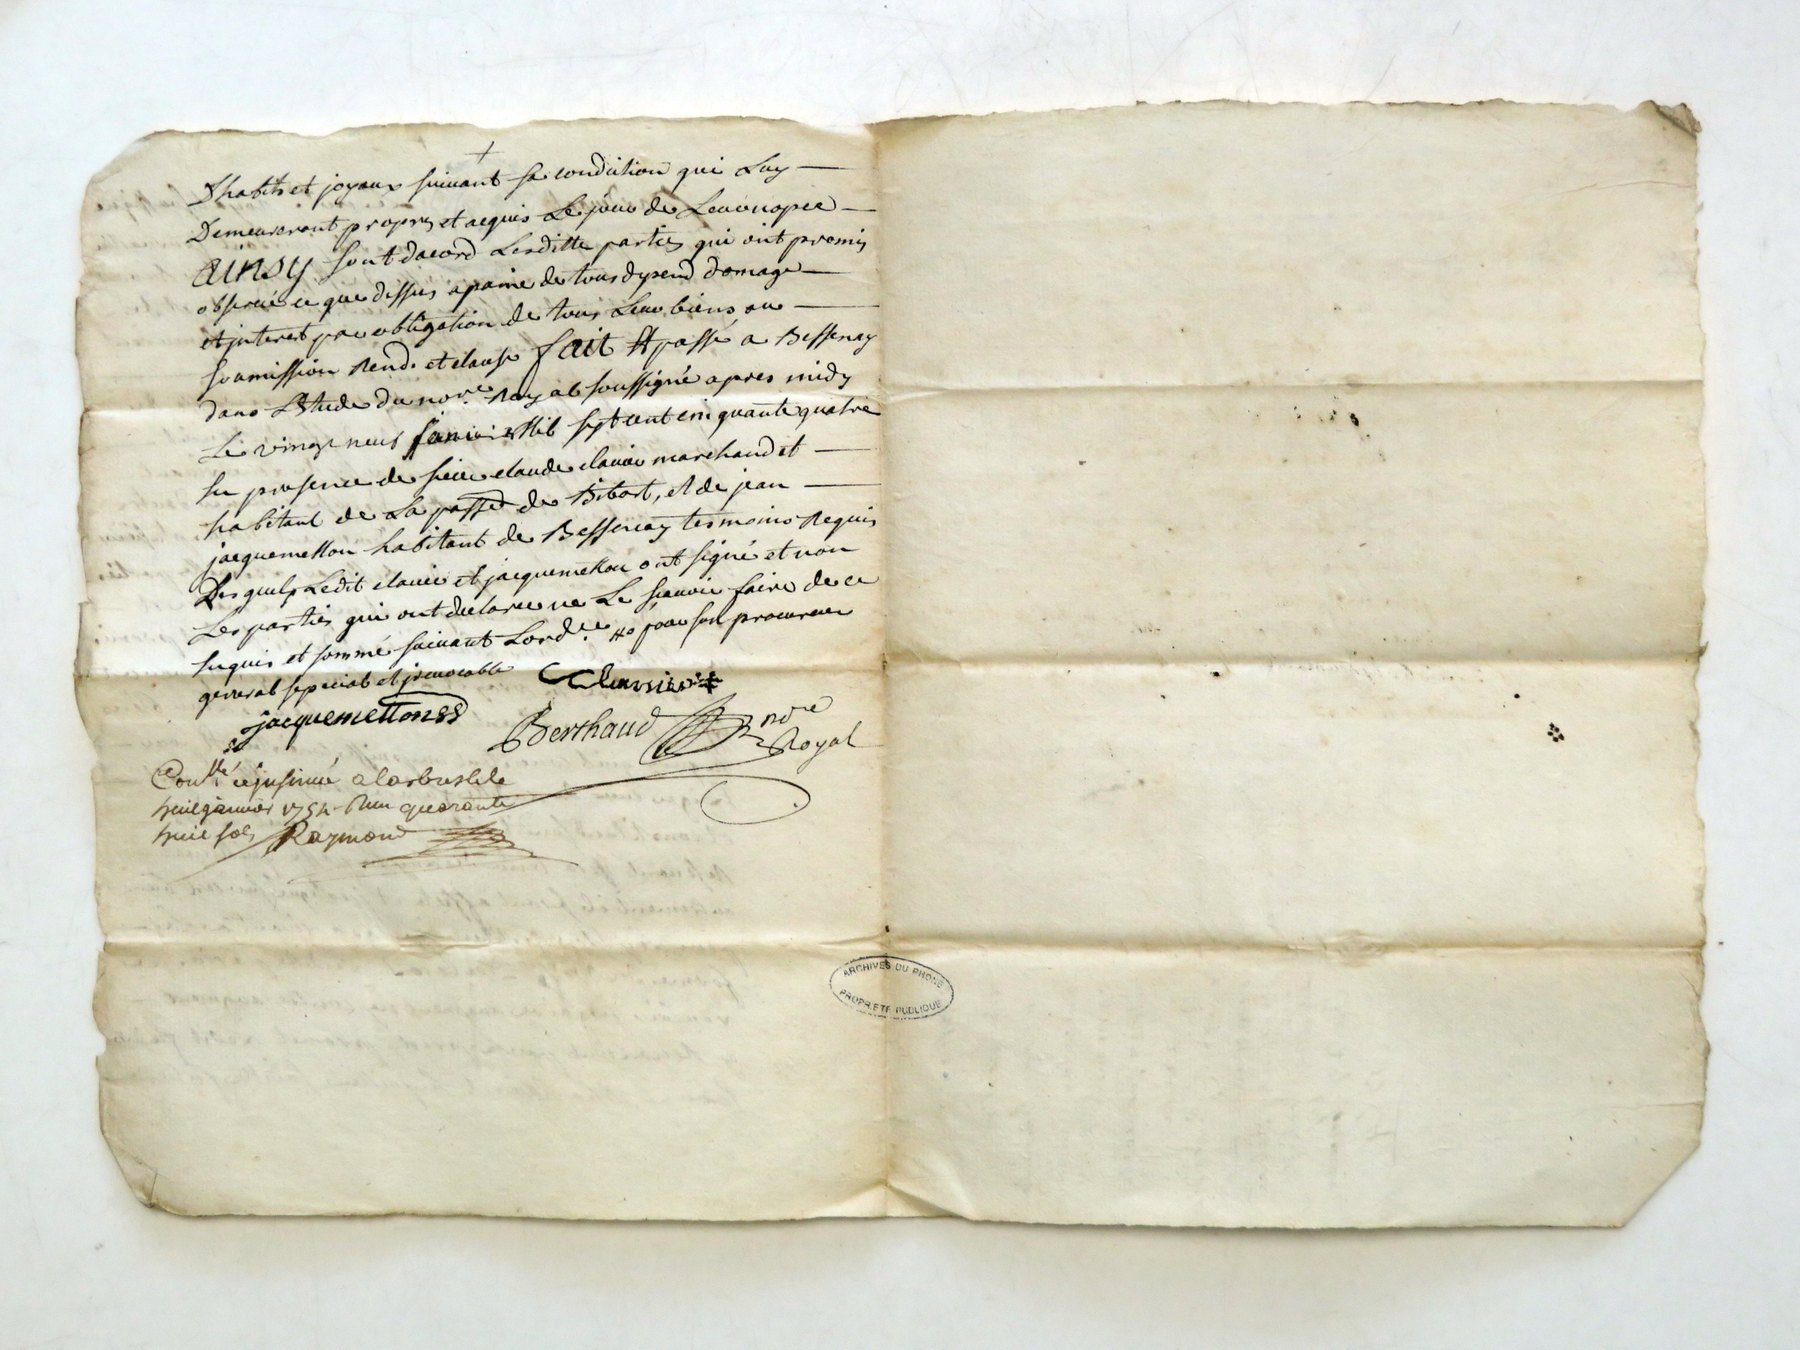 d'habits et joyaux suivant sa condition qui luy
Demeureront propres et acquis le jour de
ainsy sont dacord Lesditte parties qui ont promis
observé ce que dessus a paine de tous dépend domage
et interest par obligation de tous leur biens au
soumission Rend. et clause fait et passé a Bessenay
dans L'Etude du nore. Royal soussigné apres midy
Le vingt neuf janvier Mil sept cent cinquante quatre
En presence de sieur claude clavier marchand et
habitant de La de Bibost, et de jean
jacquemetton habitant de Bessenay tesmoins Requis
Desquels Ledit clavier et jacquemetton ont signé et non
Les parties qui ont declaree ne Le scavoir faire de ce
Enquis et sommé suivant Lordce. pour son procureur
general special et jrrevocable
Clavier
jacquemetton
Berthaud nore
Royal
Conllé et insinué alarbresle le
janvier 1754 Reçu quarante
huit sols Raymond
ARCHIVES DU RHONE
PROPRIETE PUBLIQUE